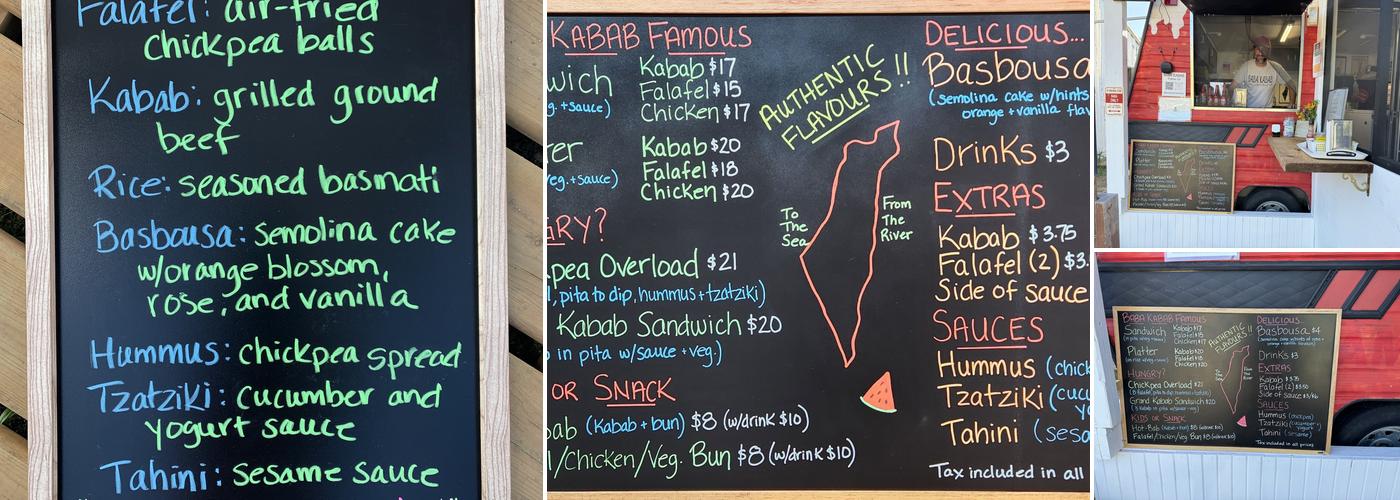 Falafel: air-fried
chickpea balls
Kabab: grilled ground
beef
Rice: seasoned basmati
Basbousa: semolina cake
w/orange blossom,
rose, and vanilla
Hummus: chickpea spread
Tzatziki: cucumber and
yogurt sauce
Tahini: sesame sauce
KABAB FAMOUS
wich
g.+sauce)
Kabab $17
Falafel $15
Chicken $17
er
veg.+sauce)
Kabab $20
Falafel $18
Chicken $20
GRY?
pea Overload $21
l, pita to dip, hummus + tzatziki)
Kabab Sandwich $20
o in pita w/sauce + veg.)
OR SNACK
ab (Kabab + bun) $8 (w/drink $10)
l/Chicken/Veg. Bun $8 (w/drink $10)
AUTHENTIC
FLAVOURS!!
To
The
Sea
From
The
River
DELICIOUS...
Basbousa
(semolina cake w/hints
orange + vanilla flav
Drinks $3
EXTRAS
Kabab $3.75
Falafel (2) $3.
Side of sauce
SAUCES
Hummus (chick
Tzatziki (cucu
yo
Tahini (sesa
Tax included in all
BABA KABAB
BABA KABAB FAMOUS
Sandwich
Kabab $17
Falafel $15
Chicken $17
Platter
Kabab $20
Falafel $18
Chicken $20
HUNGRY?
Chickpea Overload $21
Grand Kabab Sandwich $20
KIDS OR SNACK
Hot-Bab (Kabab + bun) $8 (w/drink $10)
Falafel/Chicken/Veg. Bun $8 (w/drink $10)
AUTHENTIC
FLAVOURS!!
To
The
Sea
From
The
River
DELICIOUS...
Basbousa $4
Drinks $3
EXTRAS
Kabab $3.75
Falafel (2) $3.50
Side of sauce
SAUCES
Hummus (chickpea)
Tzatziki (cucumber +
yogurt)
Tahini (sesame)
Tax included in all prices